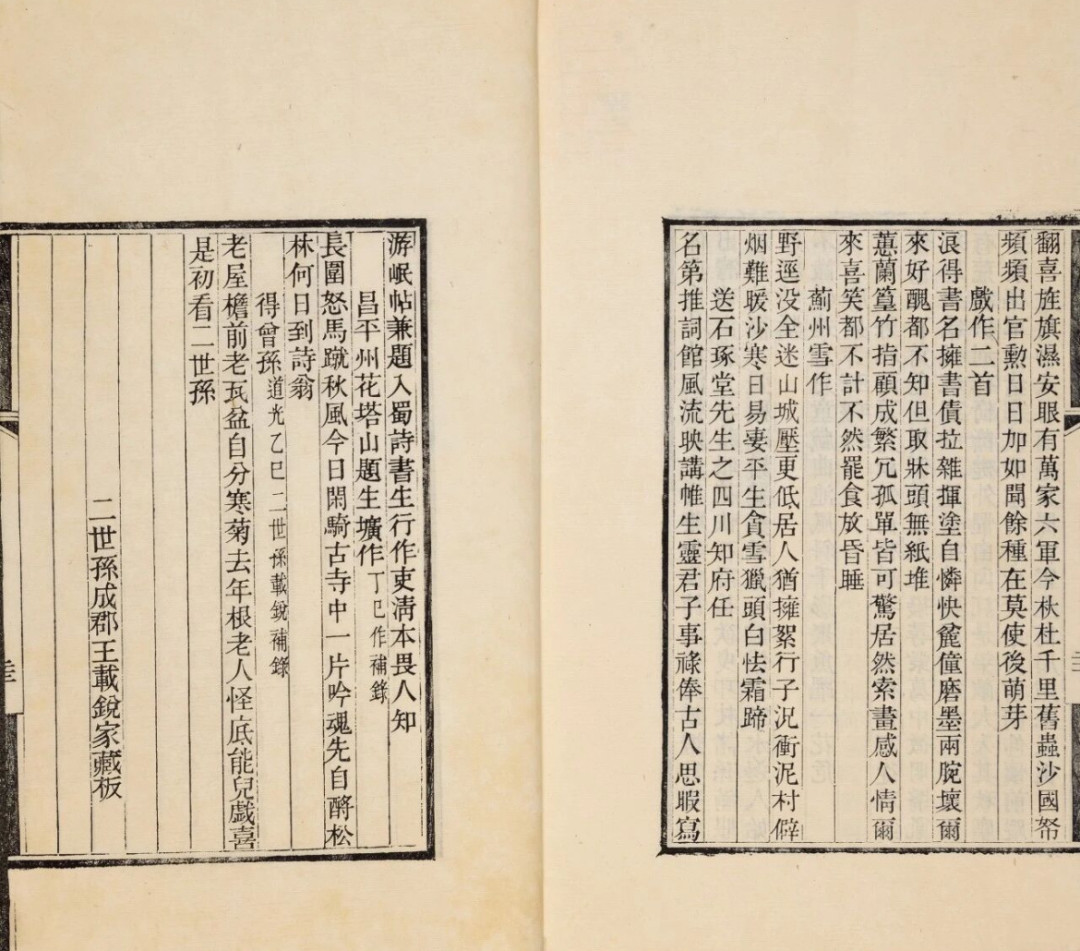 翻喜旌旗濕安眼有萬家六軍今杕杜千里舊蟲沙國帑
頻頻出官勲日日加如聞餘種在莫使後萌芽
戲作二首
浪得書名擁書債拉雜揮塗自憐快麄僮磨墨兩腕壞爾
來好醜都不知但取牀頭無紙堆
蕙蘭篁竹指顧成繁冗孤單皆可驚居然索畫感人情爾
來喜笑都不計不然罷食放昏睡
薊州雪作
野逕没全迷山城壓更低居人猶擁絮行子況衝泥村僻
烟難暖沙寒日易凄平生貪雪獵頭白怯霜蹄
送石琢堂先生之四川知府任
名第推詞館風流映講帷生靈君子事祿俸古人思暇寫
游岷帖兼題入蜀詩書生行作吏淸本畏人知
昌平州花塔山題生壙作丁巳作補錄
長圍怒馬蹴秋風今日閑騎古寺中一片吟魂先自酹松
林何日到詩翁
得曾孫道光乙巳二世孫載銳補錄
老屋檐前老瓦盆自分寒菊去年根老人怪底能兒戲喜
是初看二世孫
二世孫成郡王載銳家藏板